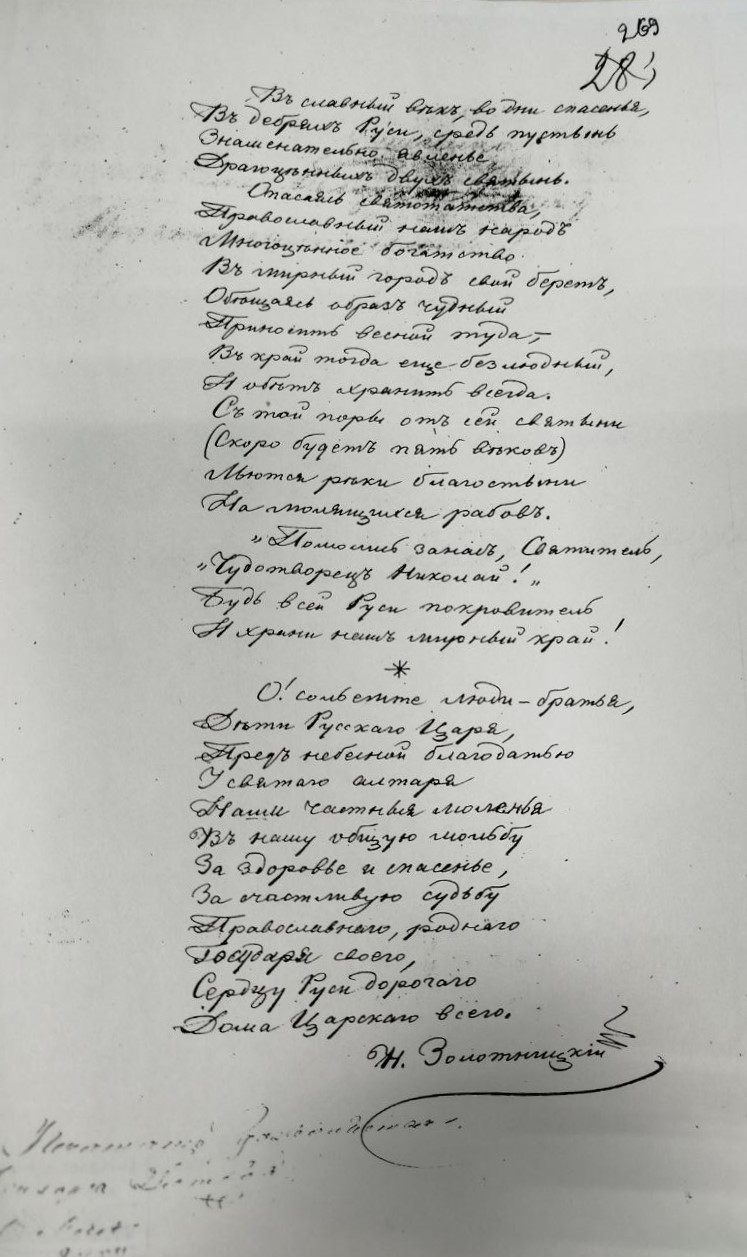 269
28
Въ славный вѣкъ, во дни спасенья,
Въ дебряхъ Руси, средь пустынь
Знаменательно явленье
Драгоцѣнныхъ двухъ святынь.
Спасаясь святотатства,
Православный нашъ народъ
Многоцѣнное богатство
Въ мирный городъ свой беретъ,
Обѣщаясь образъ чудный
Приносить весной туда,—
Въ край тогда еще безлюдный,
И обѣтъ хранить всегда.
Съ той поры отъ сей святыни
(Скоро будетъ пять вѣковъ)
Льются рѣки благостыни
На молящихся рабовъ.
„Помолись за насъ, Святитель,
„Чудотворецъ Николай!„
Будь всей Руси покровитель
И храни нашъ мирный край!
*
О! сольемте люди-братья,
Дѣти Русскаго Царя,
Предъ небесной благодатью
У святаго алтаря
Наши частныя моленья
Въ нашу общую мольбу
За здоровье и спасенье,
За счастливую судьбу
Православнаго, роднаго
Государя своего,
Сердцу Руси дорогаго
Дома Царскаго всего.
Н. Золотницкій